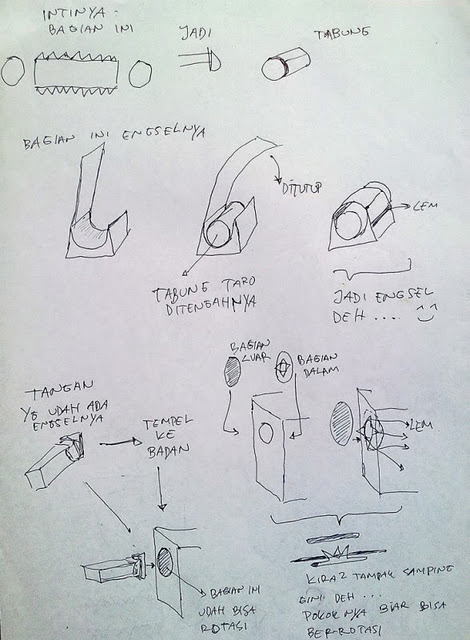 INTINYA -
BAGIAN INI
JADI
TABUNG
BAGIAN INI ENGSELNYA
DITUTUP
LEM
TABUNG TARO
DITENGAHNYA
JADI ENGSEL
DEH ....
BAGIAN
LUAR
BAGIAN
DALAM
TANGAN
YG UDAH ADA
ENGSELNYA
TEMPEL
KE
BADAN
LEM
BAGIAN INI
UDAH BISA
ROTASI
KIRA2 TAMPAK SAMPING
GINI DEH ...
POKOKNYA BIAR BISA
BERROTASI